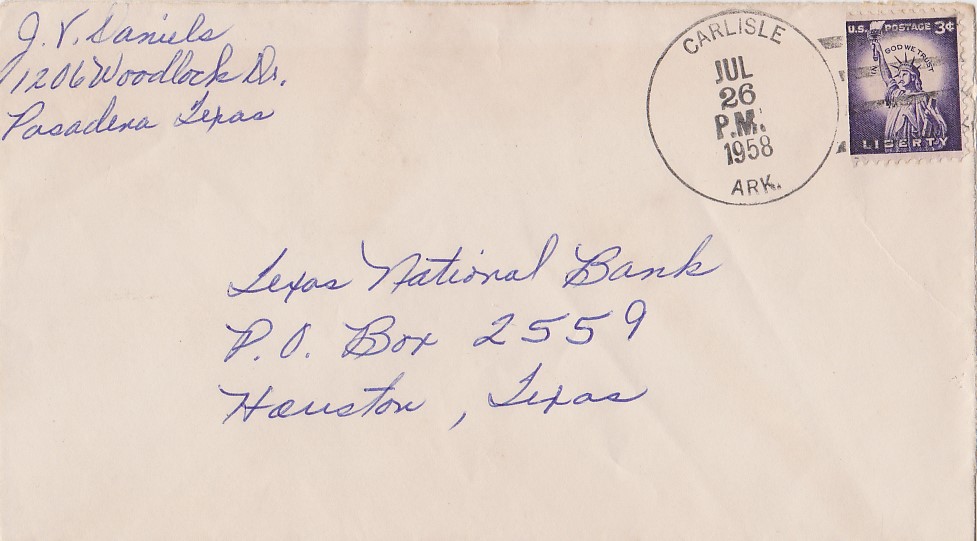 J. V. Daniels
1206 Woodlock Dr.
Pasadena Texas
CARLISLE
JUL
26
P.M.
1958
ARK.
U.S. POSTAGE 3¢
IN GOD WE TRUST
LIBERTY
Texas National Bank
P.O. Box 2559
Houston, Texas